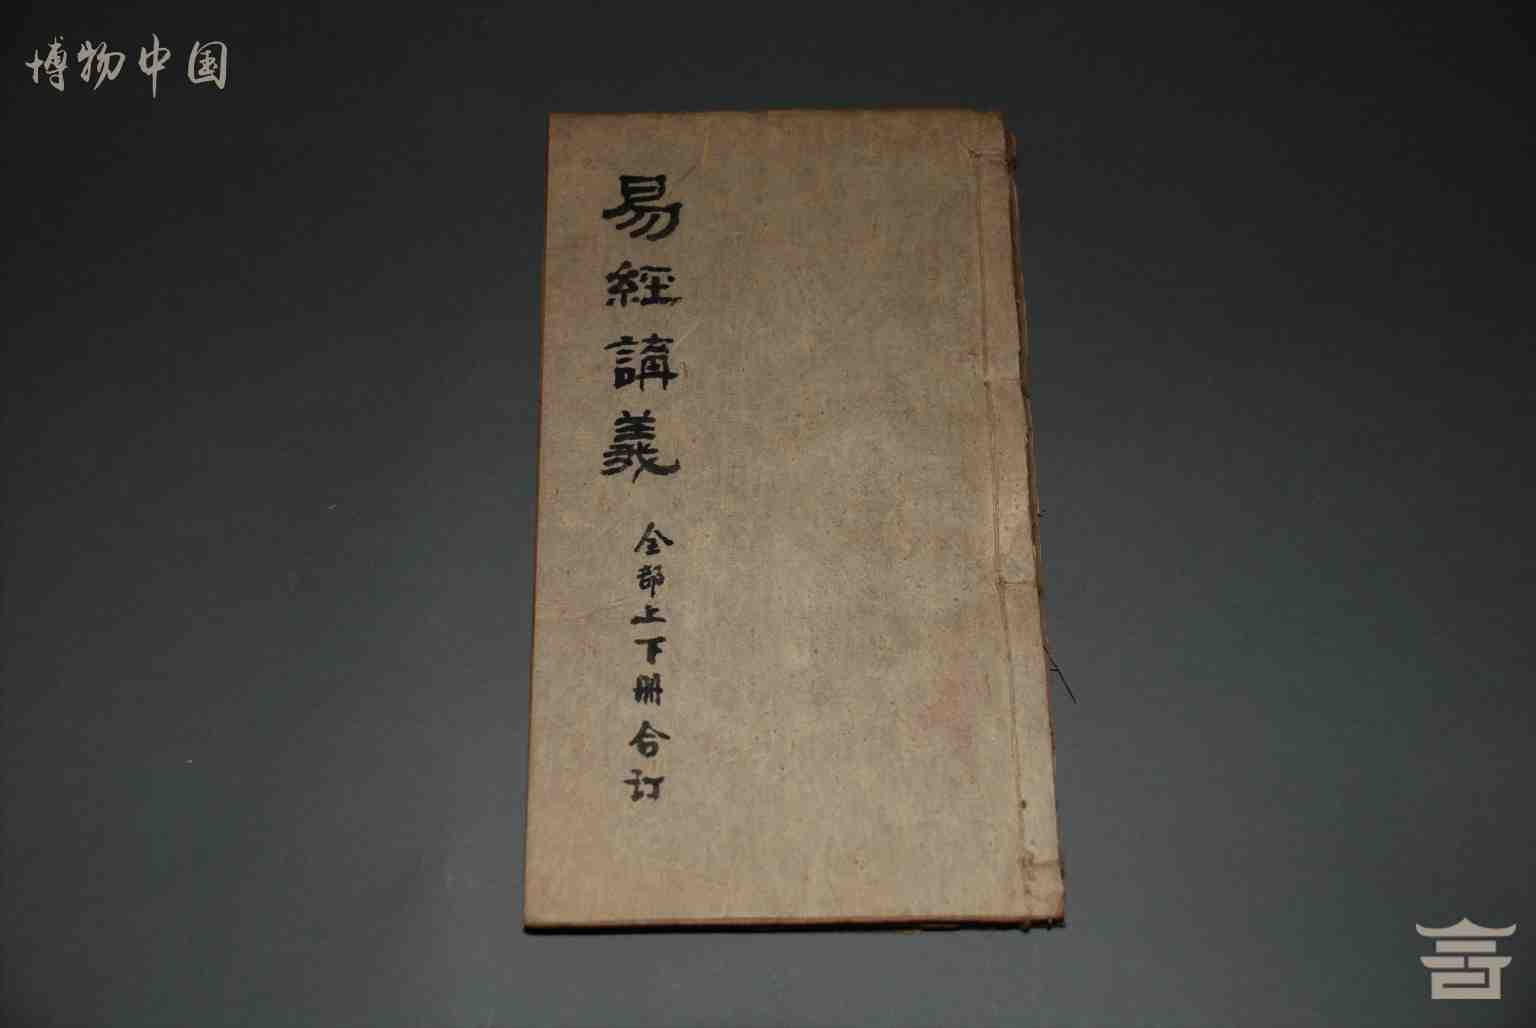 博物中国
易經講義
全部上下册合订